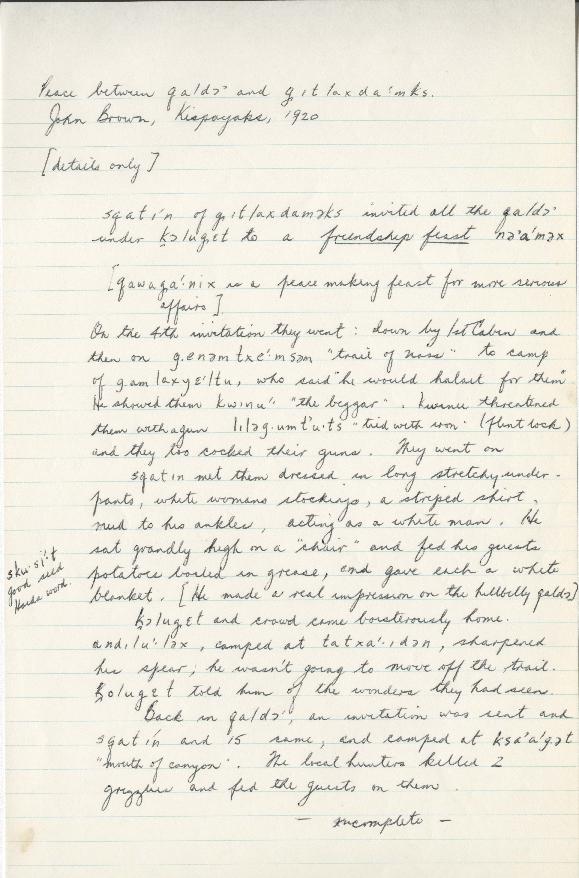 Peace between qaldɔˑ and g̣ıtlaxdaˑmks.
John Brown, Kispayaks, 1920
[details only]
sqatíˑn of g̣ıtlaxdaməks invited all the qaldɔˑ
under ḳəlug̣ɛt to a friendship feast nəʼaˑməx
[qawag̣aˑnix is a peace making feast for more serious
affairs].
On the 4th invitation they went: down by 1st Cabin and
then on g̣enəmtxeˑmsəm "trail of nass" to camp
of g̣amlaxyɛˑltu, who said "he would halait for them"
He showed them kwınuˑ "the beggar". Kwınu threatened
them with a gun lılag̣umt'uˑts "tied with iron" (flintlock)
and they too cocked their guns. They went on
sqatın met them dressed in long stretchy under-
pants, white womans stockings, a striped shirt,
to his ankles, acting as a white man. He
sat grandly high on a "chair" and fed his guests
potatoes boiled in grease, and gave each a white
blanket. [He made a real impression on the hillbilly qaldɔ]
skuˑsiˑt
good seed
Haida word.
ḳəlug̣ɛt and crowd came boisterously home.
andıluˑləx, camped at tatxaˑıdən, sharpened
his spear; he wasn't going to move off the trail.
ḳəlugɛt told him of the wonders they had seen.
Back in qaldɔˑ, an invitation was sent and
sqatíˑn and 15 came, and camped at ksaʼaˑg̣ət
"mouth of canyon". The local hunters killed 2
grizzlies and fed the guests on them.
— incomplete —